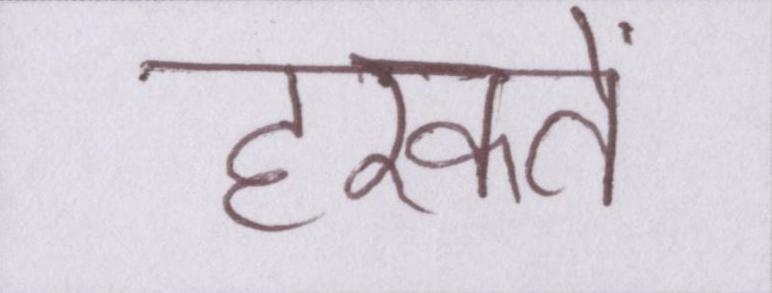 हरकतें